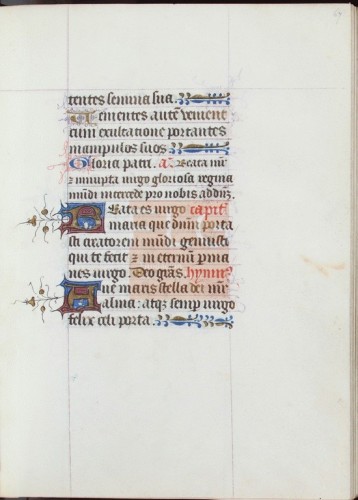 tentes semina sua.
Uenientes autē venient
cum exultatione portantes
manipulos suos
Gloria patri. a. Beata mr̄
⁊ innupta uirgo gloriosa regina
mūdi intercede pro nobis ad dnm̄.
Beata es uirgo capit̄
maria que dnūm porta
sti creatorem mūdi genuisti
qui te fecit ⁊ in eternū pma
nes uirgo. Deo grās. hymns
Aue maris stella dei mr̄
alma: atq; semp uirgo
felix celi porta.